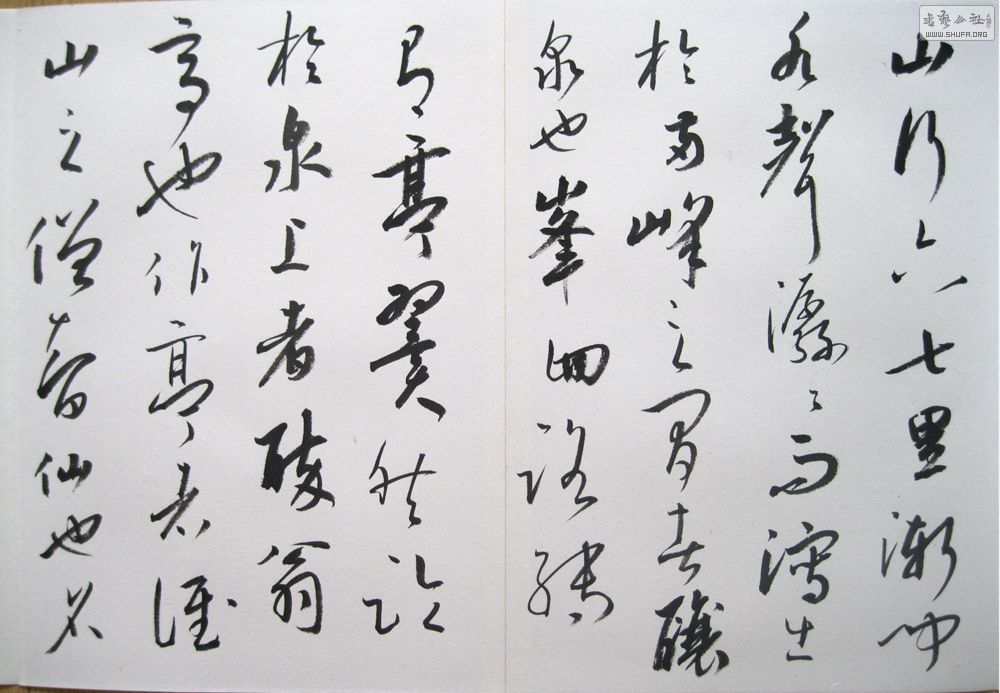 書藝公社
WWW.SHUFA.ORG
山行六七里漸聞
水聲潺〻而瀉出
於兩峰之間者釀
泉也峯回路轉
有亭翼然臨
於泉上者醉翁
亭也作亭者誰
山之僧智仙也名